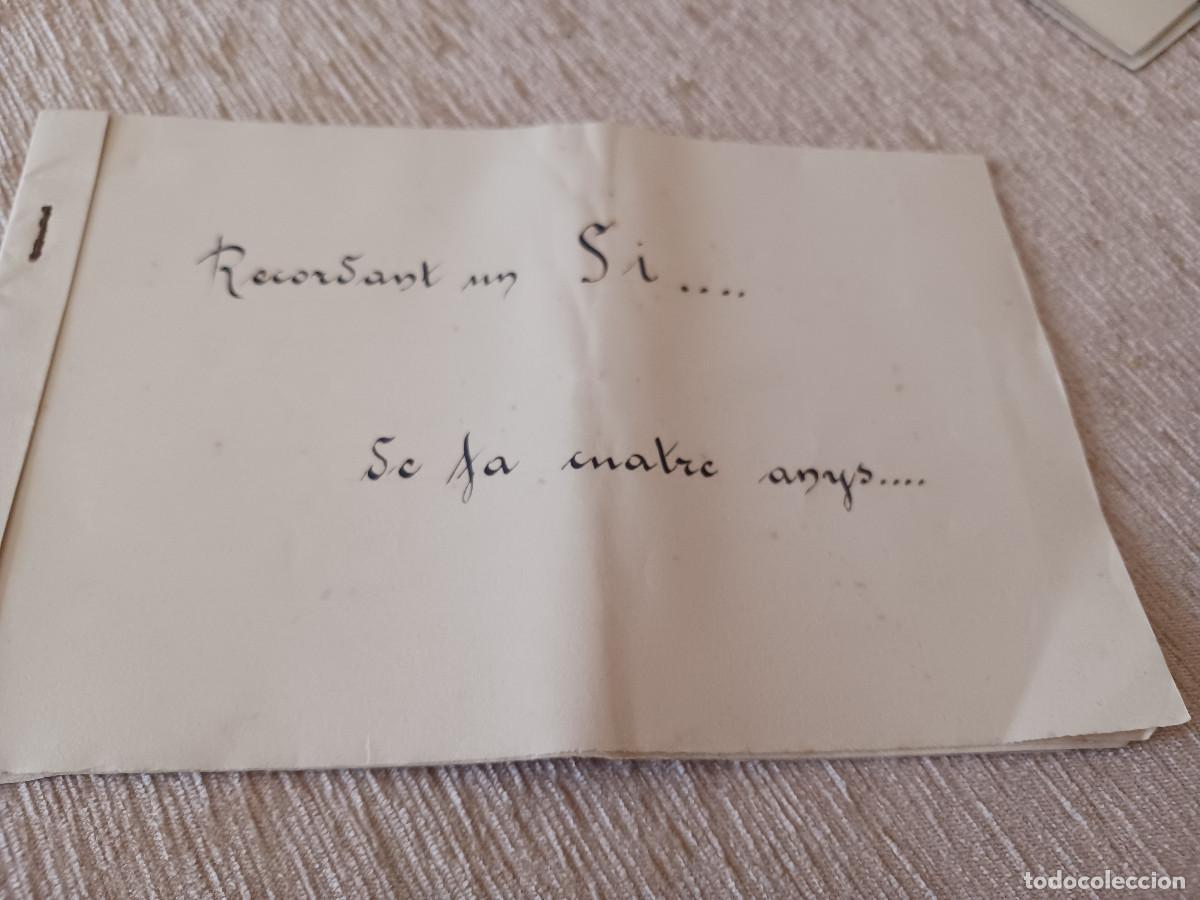 Recordant un Si....
de fa cuatre anys....
todocoleccion